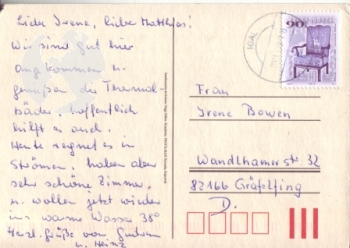 Liebe Irene, lieber Matthias!
Wir sind gut hier
angekommen u.
genießen die Thermal-
bäder, hoffentlich
hilft es auch.
Heute regnet es in
Strömen, haben aber
sehr schöne Zimmer,
u. wollen jetzt wieder
ins warme Wasser 38°
Herzl. Grüße von Gudrun
u. Heinz
IGAL
90
Frau
Irene Bowen
Wandlhamerstr. 32
82166 Gräfelfing
D.